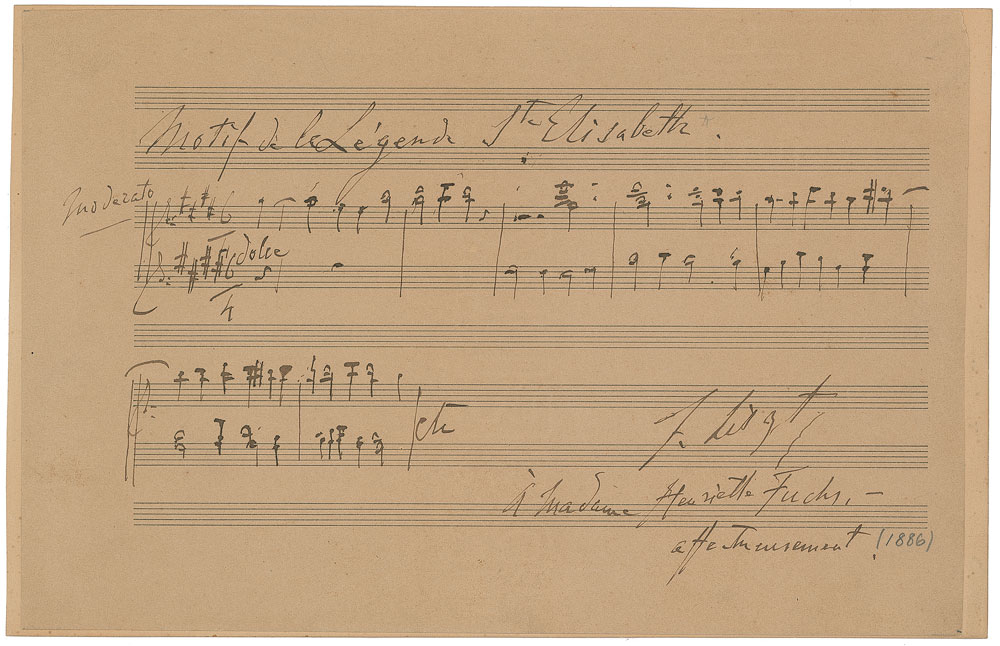 Motif de la Légende Ste Elisabeth.
Moderato
6
dolce
6
4
etc
F. Liszt
à Madame Henriette Fuchs. –
affectueusement. (1886)